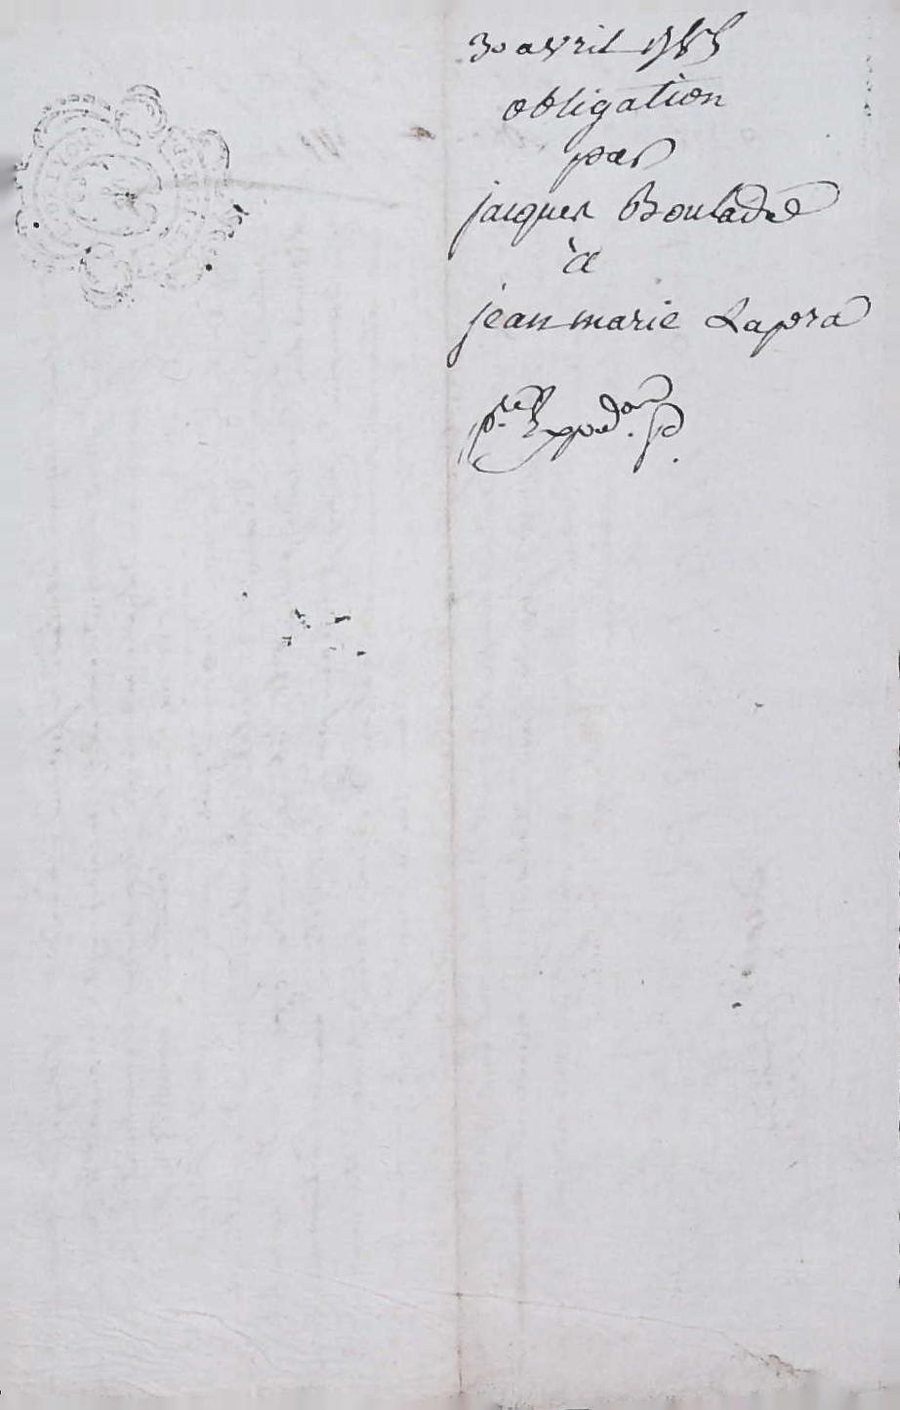 30 avril 1785
obligation
par
jacques Bouladre
à
jean marie Lapra
p.re Expéd.on